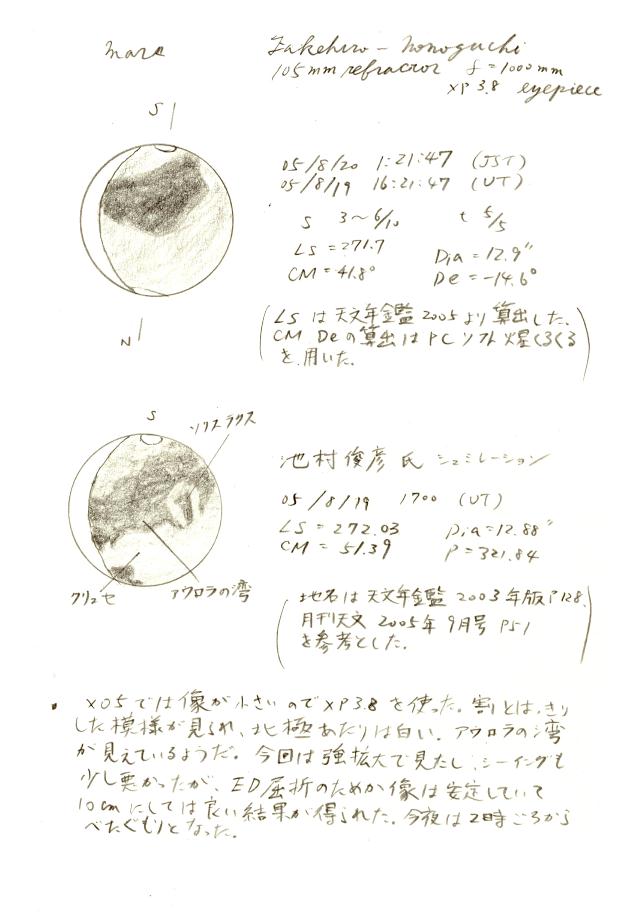 Mars
Takehiro - Nonoguchi
105mm refractor f=1000mm
XP 3.8 eyepiece
S
05/8/20 1:21:47 (JST)
05/8/19 16:21:47 (UT)
S 3～6/10 t 5/5
LS = 271.7 Dia = 12.9"
CM = 41.8° De = -14.6°
N
(LSは天文年鑑2005より算出した。
CM Deの算出はPCソフト火星くるくる
を用いた。)
S
ソリスラクス
池村俊彦氏 シュミレーション
05/8/19 1700 (UT)
LS = 272.03 Dia=12.88"
CM = 51.39 P = 321.84
クリュセ
アウロラの湾
(地名は天文年鑑2003年版P128、
月刊天文2005年9月号P51
を参考とした。)
・XO5では像が小さいのでXP3.8を使った。割とはっきり
した模様が見られ、北極あたりは白い。アウロラの湾
が見えているようだ。今回は強拡大で見たし、シーイングも
少し悪かったが、ED屈折のためか像は安定していて
10cmにしては良い結果が得られた。今夜は2時ごろから
べたぐもりとなった。